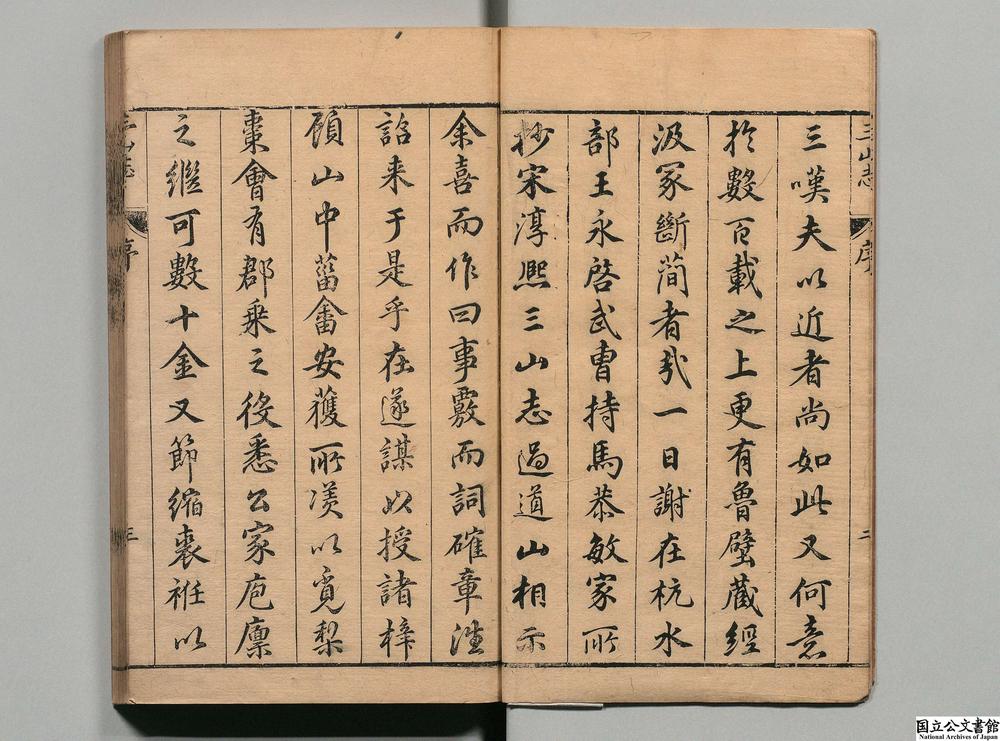 三山志
序
三嘆夫以近者尚如此又何意
於數百載之上更有魯壁藏經
汲冢斷簡者哉一日謝在杭水
部王永啓武曹持馬恭敏家所
抄宋淳熙三山志過道山相示
余喜而作曰事覈而詞確章
詒来于是乎在遂謀以授諸梓
顧山中菑畬安獲所羨以覓梨
棗會有郡乘之役悉公家庖廩
之繼可數十金又節縮裘袵以
三山志
序
三
国立公文書館
National Archives of Japan